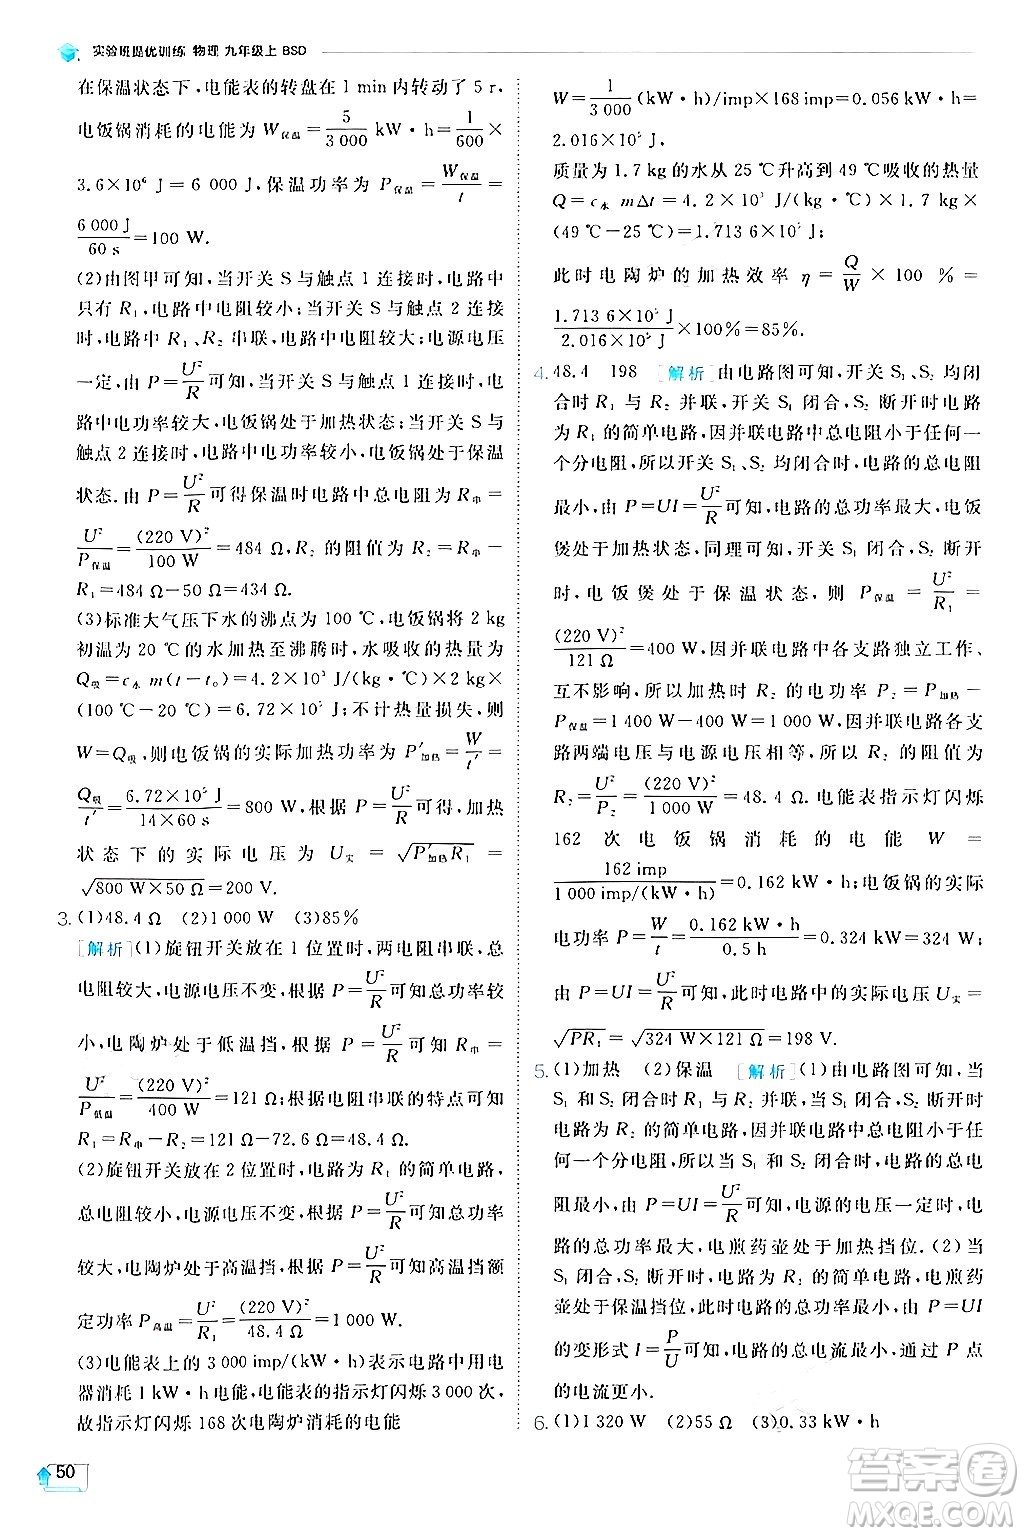 实验班提优训练 物理 九年级上 BSD
在保温状态下,电能表的转盘在 1 min内转动了 5 r,
电饭锅消耗的电能为 W保温=5/3 000 kW·h=1/600×
3.6×10⁶ J=6 000 J,保温功率为 P保温=W保温/t=
6 000 J/60 s=100 W.
(2)由图甲可知,当开关 S 与触点 1 连接时,电路中
只有 R₁,电路中电阻较小;当开关 S 与触点 2 连接
时,电路中 R₁、R₂ 串联,电路中电阻较大;电源电压
一定,由 P=U²/R可知,当开关 S 与触点 1 连接时,电
路中电功率较大,电饭锅处于加热状态;当开关 S 与
触点 2 连接时,电路中电功率较小,电饭锅处于保温
状态.由 P=U²/R可得保温时电路中总电阻为 R串=
U²/P保温=(220 V)²/100 W=484 Ω,R₂ 的阻值为 R₂=R串-
R₁=484 Ω-50 Ω=434 Ω.
(3)标准大气压下水的沸点为 100 ℃,电饭锅将 2 kg
初温为 20 ℃ 的水加热至沸腾时,水吸收的热量为
Q吸=c水 m(t-t₀)=4.2×10³ J/(kg·℃)×2 kg×
(100 ℃-20 ℃)=6.72×10⁵ J;不计热量损失,则
W=Q吸,则电饭锅的实际加热功率为 P′加热=W/t′=
Q吸/t′=6.72×10⁵ J/14×60 s=800 W,根据 P=U²/R可得,加热
状态下的实际电压为 U实=√P′加热R₁=
√800 W×50 Ω=200 V.
3. (1)48.4 Ω (2)1 000 W (3)85%
[解析](1)旋钮开关放在 1 位置时,两电阻串联,总
电阻较大,电源电压不变,根据 P=U²/R可知总功率较
小,电陶炉处于低温挡.根据 P=U²/R可知 R串=
U²/P低温=(220 V)²/400 W=121 Ω.根据电阻串联的特点可知
R₁=R串-R₂=121 Ω-72.6 Ω=48.4 Ω.
(2)旋钮开关放在 2 位置时,电路为 R₁ 的简单电路,
总电阻较小,电源电压不变,根据 P=U²/R可知总功率
较大,电陶炉处于高温挡.根据 P=U²/R可知高温挡额
定功率 P高温=U²/R₁=(220 V)²/48.4 Ω=1 000 W.
(3)电能表上的 3 000 imp/(kW·h)表示电路中用电
器消耗 1 kW·h 电能,电能表的指示灯闪烁 3 000 次,
故指示灯闪烁 168 次电陶炉消耗的电能
W=1/3 000 (kW·h)/imp×168 imp=0.056 kW·h=
2.016×10⁵ J.
质量为 1.7 kg 的水从 25 ℃升高到 49 ℃吸收的热量
Q=c水 mΔt=4.2×10³ J/(kg·℃)×1.7 kg×
(49 ℃-25 ℃)=1.713 6×10⁵ J;
此时电陶炉的加热效率 η=Q/W×100 %=
1.713 6×10⁵ J/2.016×10⁵ J×100%=85%.
4. 48.4 198 [解析]由电路图可知,开关 S₁、S₂ 均闭
合时 R₁ 与 R₂ 并联,开关 S₁ 闭合,S₂ 断开时电路
为 R₁ 的简单电路,因并联电路中总电阻小于任何一
个分电阻,所以开关 S₁、S₂ 均闭合时,电路的总电阻
最小,由 P=UI=U²/R可知,电路的总功率最大,电饭
煲处于加热状态,同理可知,开关 S₁ 闭合、S₂ 断开
时,电饭煲处于保温状态,则 P保温=U²/R₁=
(220 V)²/121 Ω=400 W,因并联电路中各支路独立工作、
互不影响,所以加热时 R₂ 的电功率 P₂=P加热-
P保温=1 400 W-400 W=1 000 W,因并联电路各支
路两端电压与电源电压相等,所以 R₂ 的阻值为
R₂=U²/P₂=(220 V)²/1 000 W=48.4 Ω.电能表指示灯闪烁
162 次电饭锅消耗的电能 W=
162 imp/1 000 imp/(kW·h)=0.162 kW·h;电饭锅的实际
电功率 P=W/t=0.162 kW·h/0.5 h=0.324 kW=324 W;
由 P=UI=U²/R可知,此时电路中的实际电压 U实=
√PR₁=√324 W×121 Ω=198 V.
5. (1)加热 (2)保温 [解析](1)由电路图可知,当
S₁ 和 S₂ 闭合时 R₁ 与 R₂ 并联,当 S₁ 断开、S₂ 闭合时
电路为 R₂ 的简单电路,因并联电路中总电阻小于任
何一个分电阻,所以当 S₁ 和 S₂ 闭合时,电路的总电
阻最小,由 P=UI=U²/R可知,电源的电压一定时,电
路的总功率最大,电煎药壶处于加热挡位.(2)当
S₁ 断开、S₂ 闭合时,电路为 R₂ 的简单电路,电煎药
壶处于保温挡位,此时电路的总功率最小,由 P=UI
的变形式 I=P/U可知,电路的总电流最小,通过 P 点
的电流更小.
6. (1)1 320 W (2)55 Ω (3)0.33 kW·h
50
答案圈
MXQE.COM